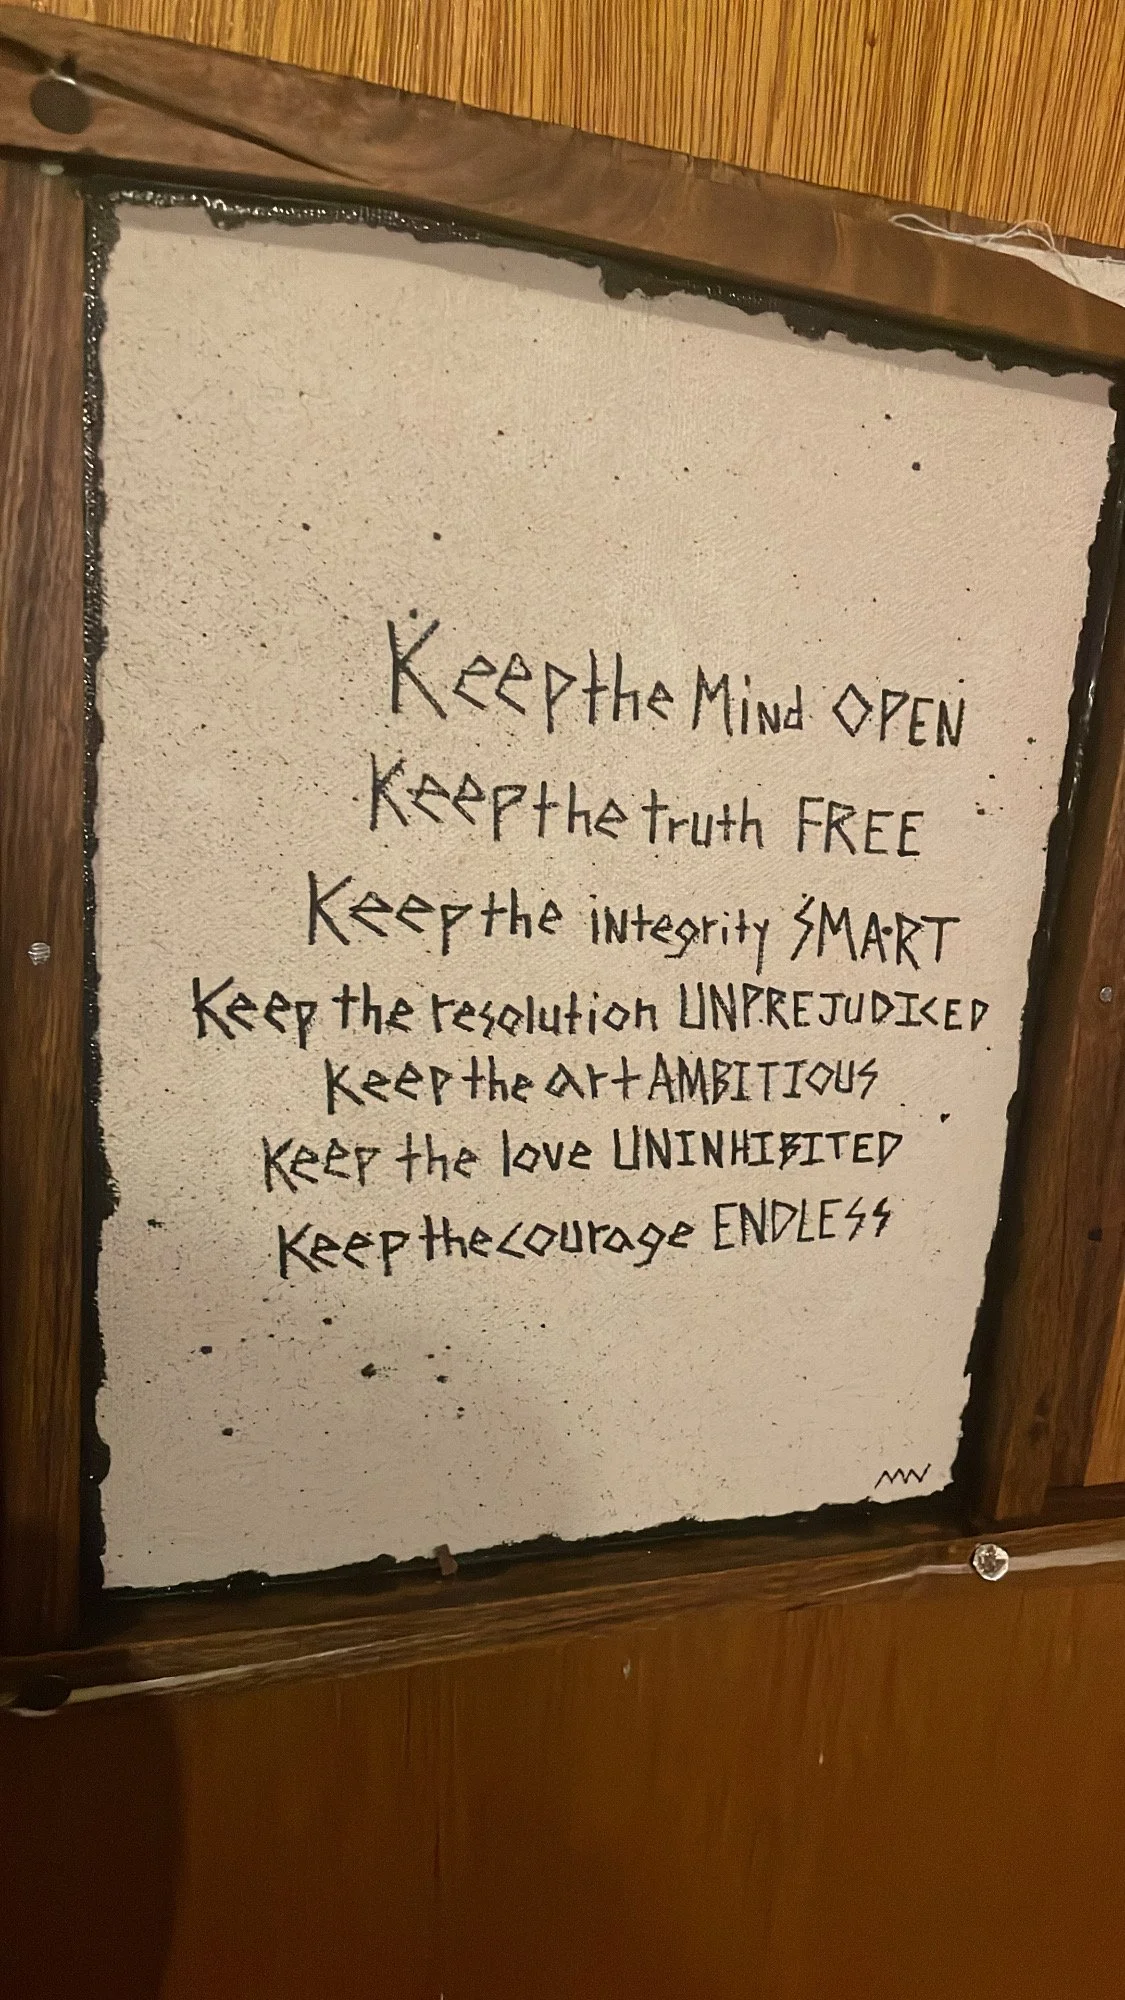 Keep the Mind OPEN
Keep the truth FREE
Keep the integrity SMART
Keep the resolution UNPREJUDICED
Keep the art AMBITIOUS
Keep the love UNINHIBITED
Keep the courage ENDLESS